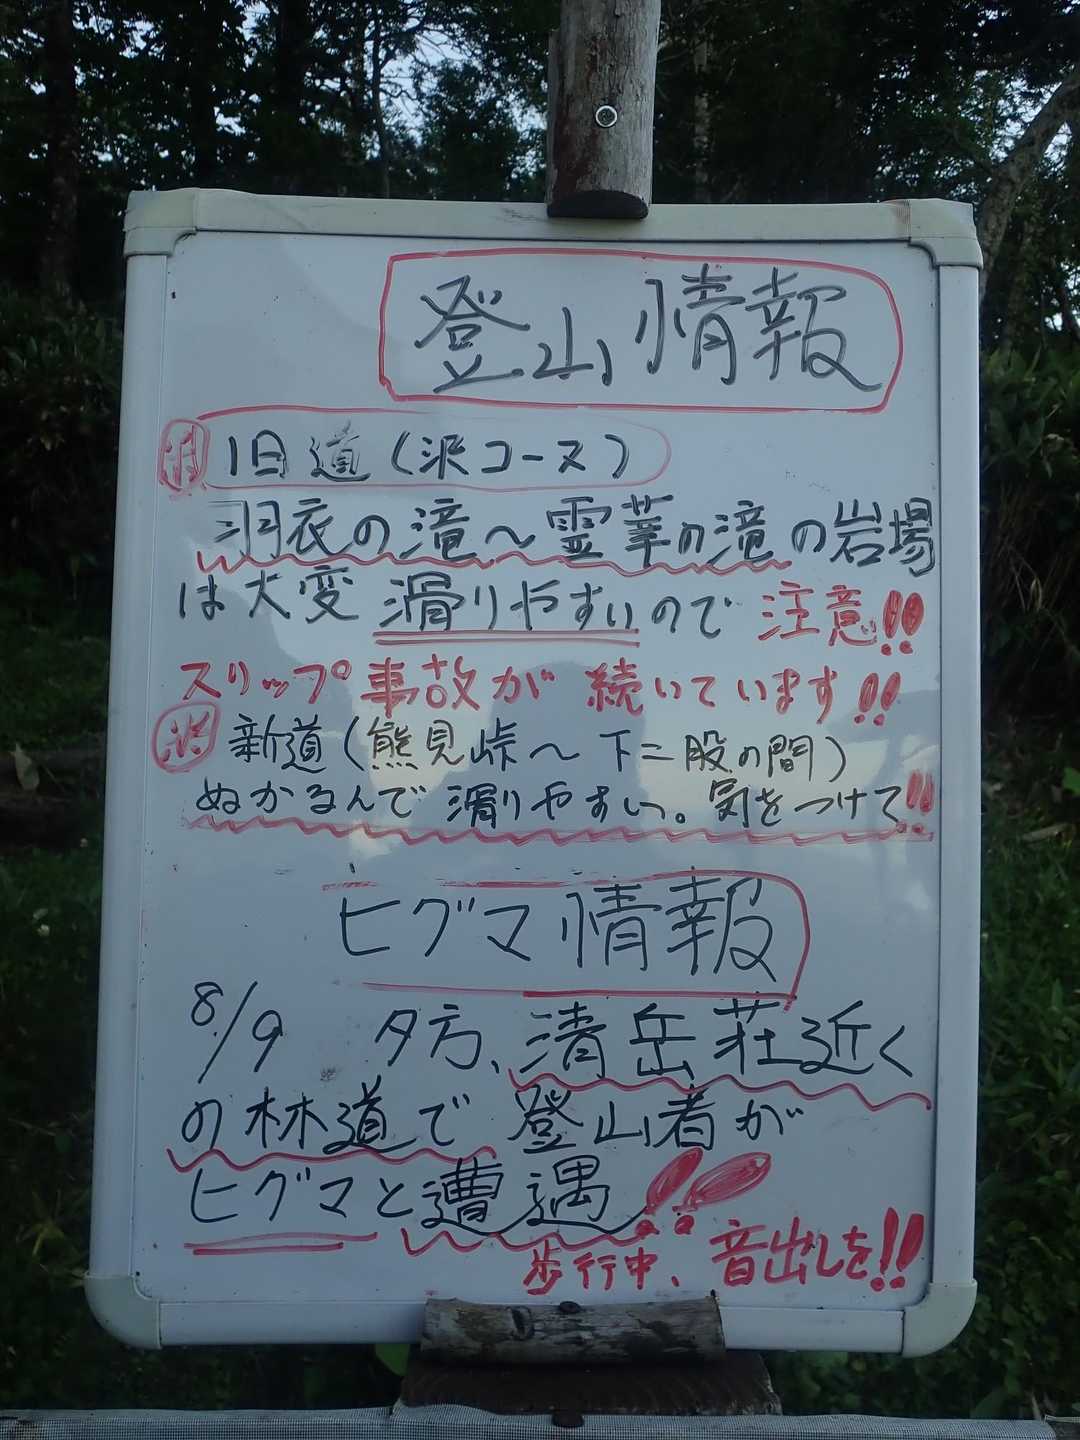 登山情報
状 旧道（沢コース）
羽衣の滝～霊華の滝の岩場
は大変滑りやすいので注意!!
スリップ事故が続いています!!
状 新道（熊見峠～下二股の間）
ぬかるんで滑りやすい。気をつけて!!
ヒグマ情報
8/9 夕方、清岳荘近く
の林道で登山者が
ヒグマと遭遇!!
歩行中、音出しを!!